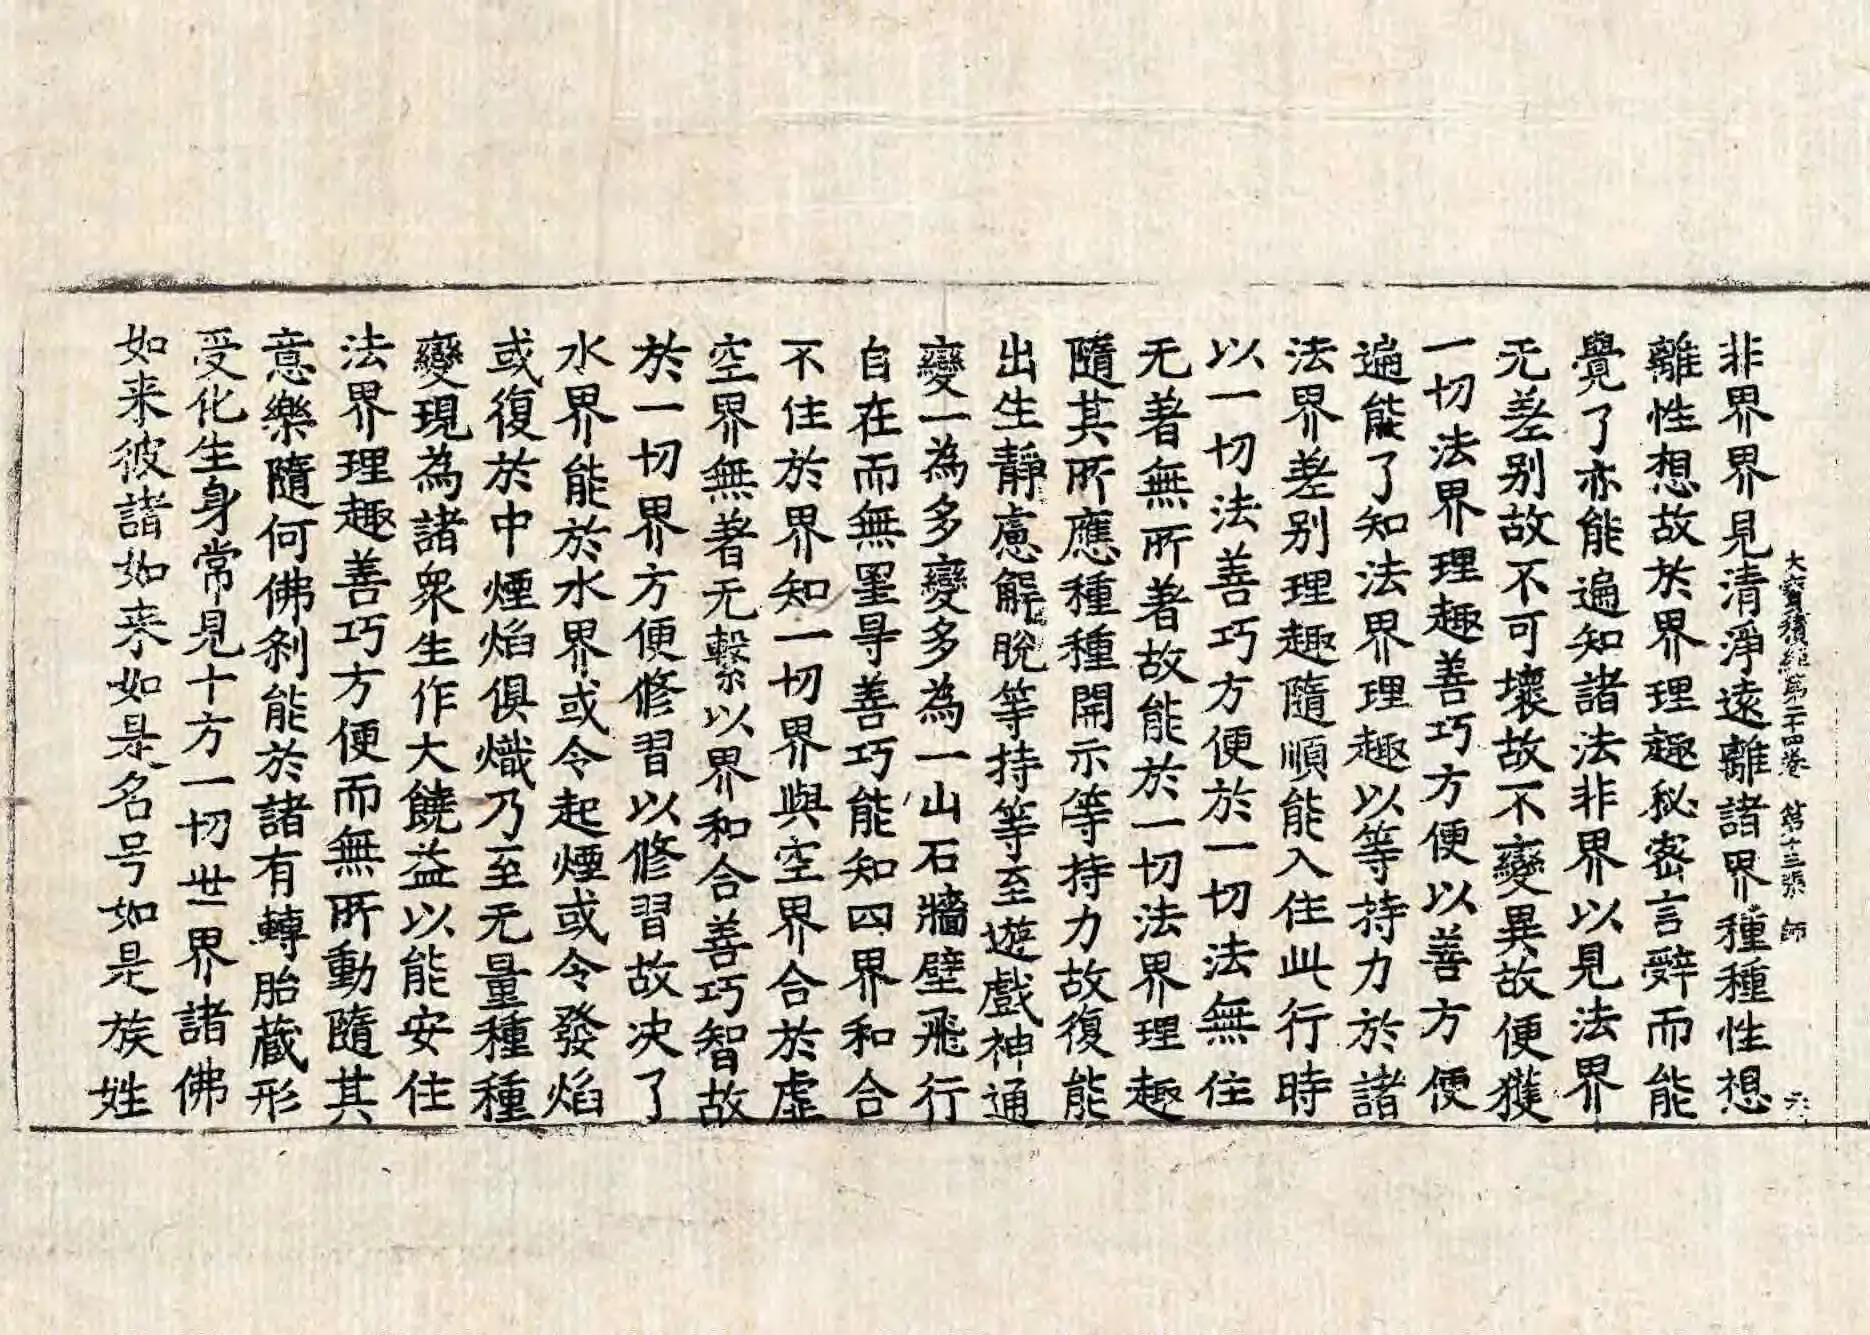 大寶積經第二十四卷 第十三張 師
非界界見清淨遠離諸界種種性想
離性想故於界理趣秘密言辭而能
覺了亦能遍知諸法非界以見法界
无差别故不可壞故不變異故便獲
一切法界理趣善巧方便以善方便
遍能了知法界理趣以等持力於諸
法界差别理趣隨順能入住此行時
以一切法善巧方便於一切法無住
无著無所著故能於一切法界理趣
隨其所應種種開示等持力故復能
出生靜慮解脫等持等至遊戲神通
變一為多變多為一山石牆壁飛行
自在而無罣㝵善巧能知四界和合
不住於界知一切界與空界合於虛
空界無著无繫以界和合善巧智故
於一切界方便修習以修習故决了
水界能於水界或令起煙或令發焰
或復於中煙焰俱熾乃至无量種種
變現為諸衆生作大饒益以能安住
法界理趣善巧方便而無所動隨其
意樂隨何佛刹能於諸有轉胎藏形
受化生身常見十方一切世界諸佛
如来彼諸如来如是名号如是族姓